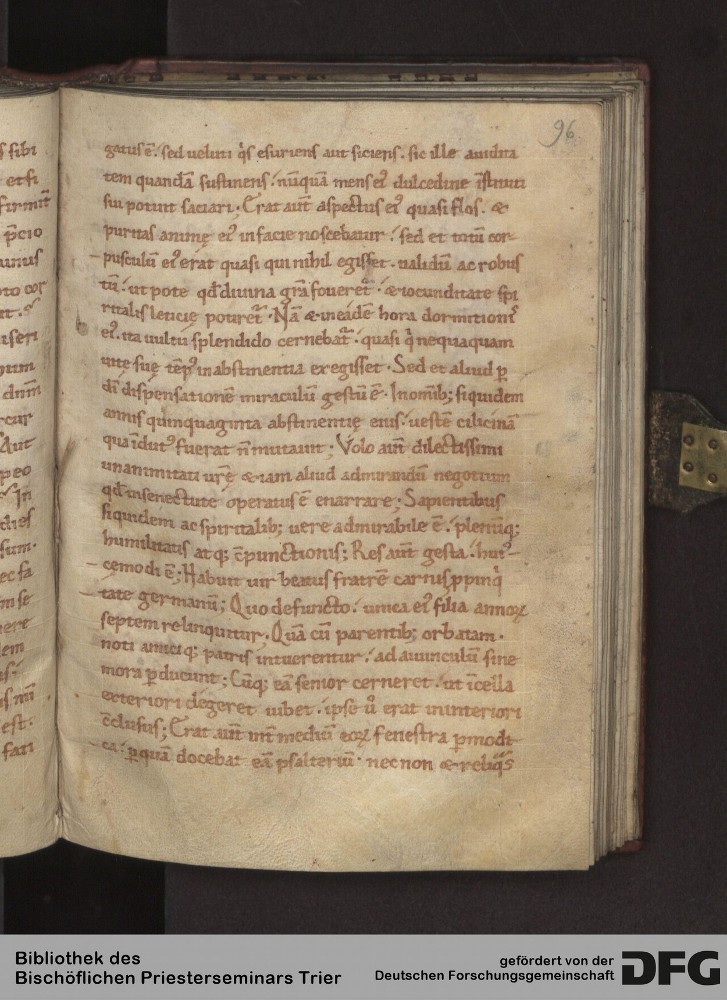 96
gatus ē. sed veluti q̇s esuriens aut siciens. sic ille avidita
tem quandā sustinens. nūquā mens ei᷒ dulcedine īstituti
sui potuit saciari; Erat aut̄ aspectus ei᷒ quasi flos. &
puritas animę ei᷒ in facie noscebatur. sed et totū cor-
pusculū ei᷒ erat quasi qui nihil egisset. validū ac robus
tū. ut pote qđ divina gr̄a foveret᷑. & iocunditate spi
ritalis leticię potiret᷑. Nā & in eadē hora dormitionis
ei᷒. ita vultu splendido cernebat᷑. quasi q̇ nequaquam
vitę suę tēp᷒ in abstinentia exegisset. Sed et aliud ꝑ
dī dispensationē miraculū gestū ē. In omīb; siquidem
annis quinquaginta abstinentię eius. vestē cilicinā
qua īdut᷒ fuerat n̄ mutavit; Volo aut̄ dilectissimi
unanimitati vr̄ę & iam aliud admirandū negotium
qđ in senectute operatus ē enarrare; Sapientibus
siquidem ac spiritalib; vere admirabile ē. plenūq;
humilitatis atq; cōpunctionis; Res aut̄ gesta. hui᷒-
cemodi ē; Habuit vir beatus fratrē carnis ꝓpinq̇
tate germanū; Quo defuncto. unica ei᷒ filia annoꝝ
septem relinquitur. Quā cū parentib; orbatam.
noti amiciq; patris intuerentur. ad avunculū sine
mora ꝑducunt; Cūq; eā senior cerneret. ut ī cella
exteriori degeret iubet. ipse ū erat in interiori
cōclusus; Erat aut̄ int̄ mediū eoꝝ fenestra ꝑmodi-
ca. ꝑ quā docebat eā psalteriū. nec non & reliq̇s
Bibliothek des
Bischöflichen Priesterseminars Trier
gefördert von der
Deutschen Forschungsgemeinschaft
DFG